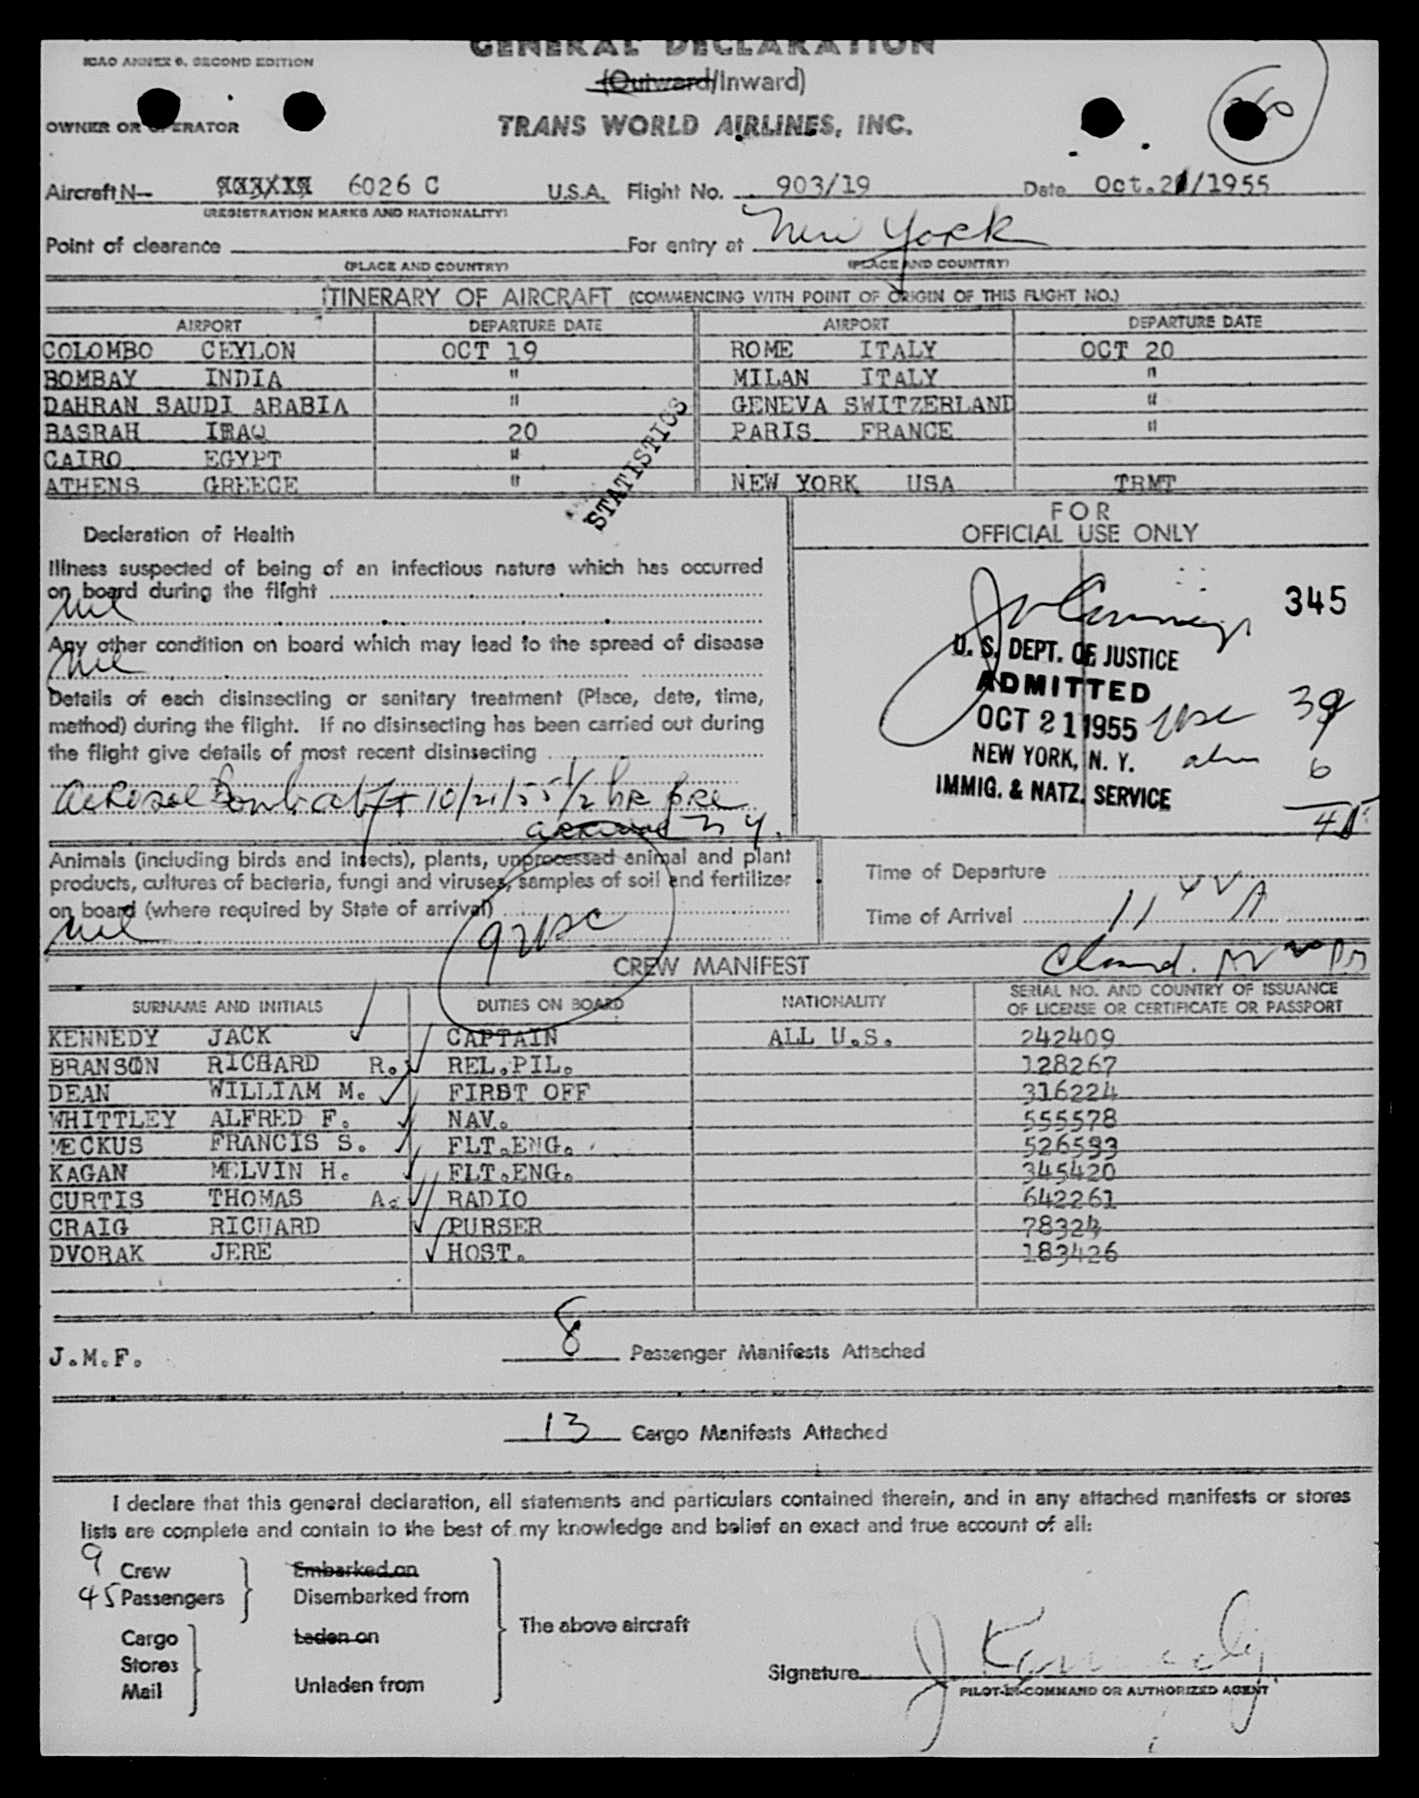 ICAO ANNEX 9, SECOND EDITION
GENERAL DECLARATION
(Outward/Inward)
OWNER OR OPERATOR
TRANS WORLD AIRLINES, INC.
Aircraft N— 6026 C U.S.A. Flight No. 903/19 Date Oct.21/1955
(REGISTRATION MARKS AND NATIONALITY)
Point of clearance For entry at New York
(PLACE AND COUNTRY) (PLACE AND COUNTRY)
ITINERARY OF AIRCRAFT (COMMENCING WITH POINT OF ORIGIN OF THIS FLIGHT NO.)
AIRPORT DEPARTURE DATE AIRPORT DEPARTURE DATE
COLOMBO CEYLON OCT 19 ROME ITALY OCT 20
BOMBAY INDIA " MILAN ITALY "
DAHRAN SAUDI ARABIA " GENEVA SWITZERLAND "
BASRAH IRAQ 20 PARIS FRANCE "
CAIRO EGYPT "
ATHENS GREECE " NEW YORK USA TRMT
STATISTICS
Declaration of Health
FOR
OFFICIAL USE ONLY
Illness suspected of being of an infectious nature which has occurred
on board during the flight
Nil
Any other condition on board which may lead to the spread of disease
Nil
Details of each disinsecting or sanitary treatment (Place, date, time,
method) during the flight. If no disinsecting has been carried out during
the flight give details of most recent disinsecting
Aerosol Bomb 10/21/55 1/2 hr pre
arrival N Y.
345
U. S. DEPT. OF JUSTICE
ADMITTED
OCT 21 1955
NEW YORK, N. Y.
IMMIG. & NATZ. SERVICE
usc 39
alien 6
45
Animals (including birds and insects), plants, unprocessed animal and plant
products, cultures of bacteria, fungi and viruses, samples of soil and fertilizer
on board (where required by State of arrival)
Nil
9 usc
Time of Departure
Time of Arrival 11
CREW MANIFEST
SURNAME AND INITIALS DUTIES ON BOARD NATIONALITY SERIAL NO. AND COUNTRY OF ISSUANCE
OF LICENSE OR CERTIFICATE OR PASSPORT
KENNEDY JACK CAPTAIN ALL U.S. 242409
BRANSON RICHARD R. REL.PIL. 128267
DEAN WILLIAM M. FIRST OFF 316224
WHITTLEY ALFRED F. NAV. 555578
MECKUS FRANCIS S. FLT.ENG. 526593
KAGAN MELVIN H. FLT.ENG. 345420
CURTIS THOMAS A. RADIO 642261
CRAIG RICHARD PURSER 78324
DVORAK JERE HOST. 183426
J.M.F. 8 Passenger Manifests Attached
13 Cargo Manifests Attached
I declare that this general declaration, all statements and particulars contained therein, and in any attached manifests or stores
lists are complete and contain to the best of my knowledge and belief an exact and true account of all:
9 Crew Embarked on
45 Passengers Disembarked from
The above aircraft
Cargo Laden on
Stores
Mail Unladen from
Signature J Kennedy
PILOT-IN-COMMAND OR AUTHORIZED AGENT